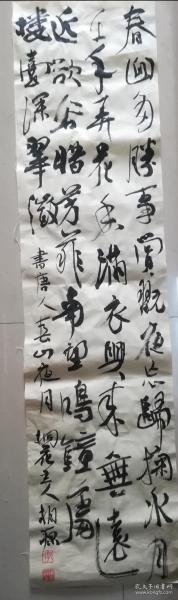 春山多勝事賞翫夜忘歸掬水月
在手弄花香滿衣興來無遠
近欲去惜芳菲南望鳴鐘處
樓臺深翠微
書唐人春山夜月
主人